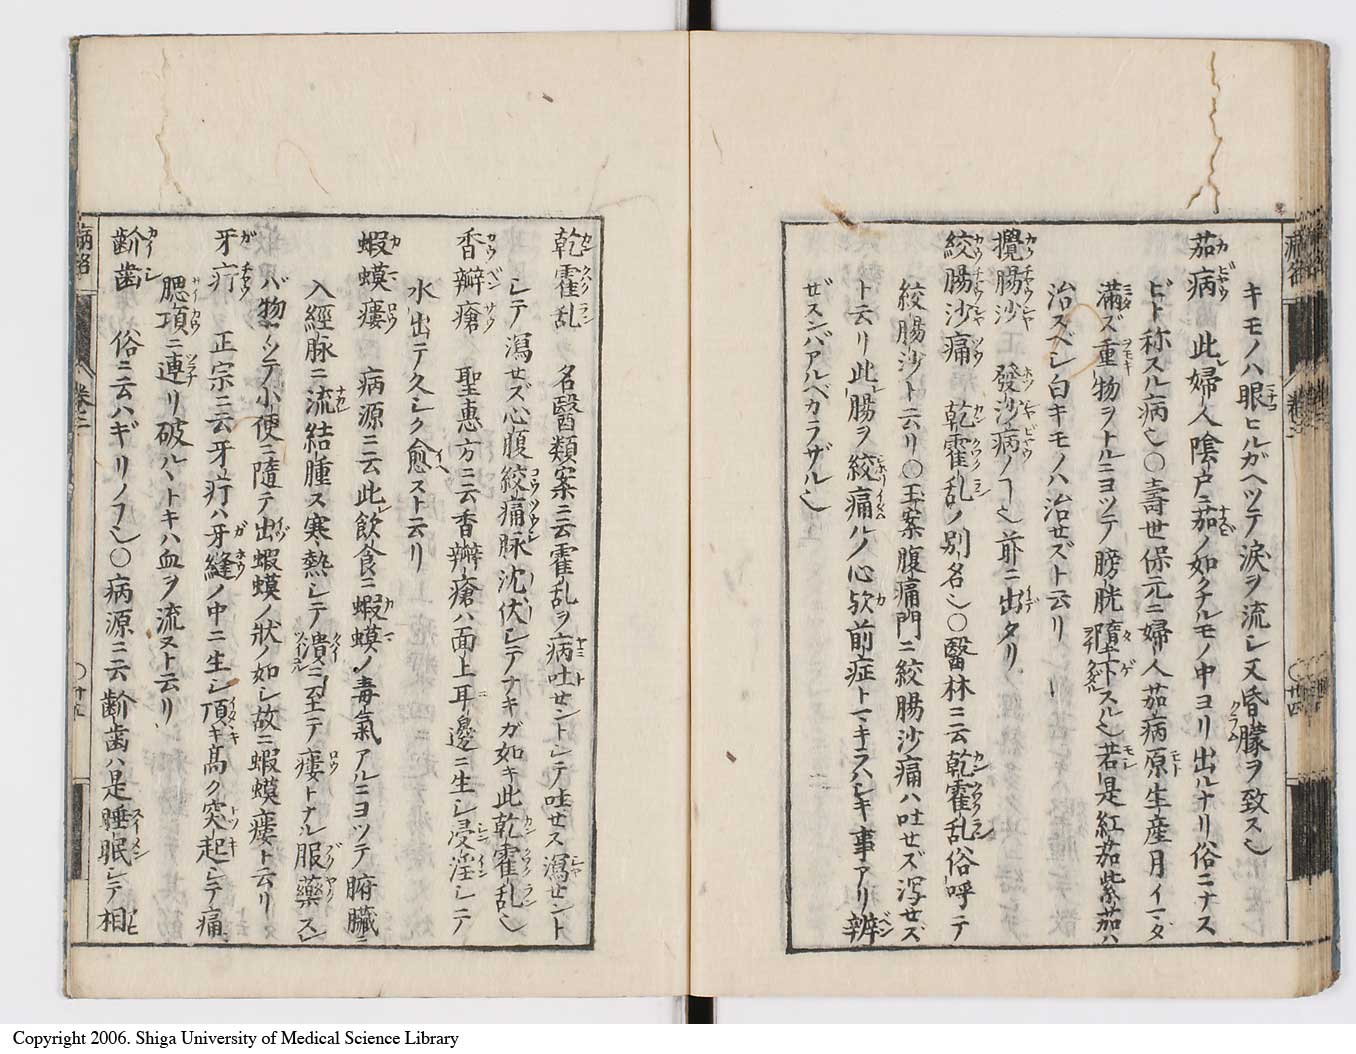 キモノハ眼ヒルガヘツテ涙ヲ流シ又昏朦ヲ致ス也
茄病 此レ婦人陰戸茄ノ如クナルモノ中ヨリ出ルナリ俗ニナス
ビト称スル病也○壽世保元ニ婦人茄病原生産月イマダ
満ズ重物ヲトルニヨツテ膀胱墮下スル也若是紅茄紫茄ハ
治スベシ白キモノハ治セズト云リ
攪腸沙 發沙病ノ也前ニ出タリ
絞腸沙痛 乾霍乱ノ別名也○醫林ニ云乾霍乱俗呼テ
絞腸沙ト云リ○玉案腹痛門ニ絞腸沙痛ハ吐セズ泻セズ
ト云リ此レ腸ヲ絞痛ルノ心欤前症トマキラハシキ事アリ辨
ゼズンバアルベカラザル也
乾霍乱 名醫類案ニ云霍乱ヲ病吐セントシテ吐セス瀉セント
シテ瀉セズ心腹絞痛脉沈伏シテナキガ如キ此乾霍乱也
香瓣瘡 聖惠方ニ云香瓣瘡ハ面上耳邊ニ生シ浸淫シテ
水出テ久シク愈ズト云リ
蝦蟆瘻 病源ニ云此レ飲食ニ蝦蟆ノ毒氣アルニヨツテ腑臓ニ
入經脉ニ流結腫ス寒熱シテ潰ニ至テ瘻トナル服藥ス
バ物アツテ小便ニ隨テ出蝦蟆ノ狀ノ如シ故ニ蝦蟆瘻ト云リ
牙疔 正宗ニ云牙疔ハ牙縫ノ中ニ生シ頂キ髙ク突起シテ痛
腮項ニ連リ破ルヽトキハ血ヲ流スト云リ
齘歯 俗ニ云ハギリノ也○病源ニ云齘歯ハ是睡眠シテ相
巻二
○廿四
○廿五
Copyright 2006. Shiga University of Medical Science Library